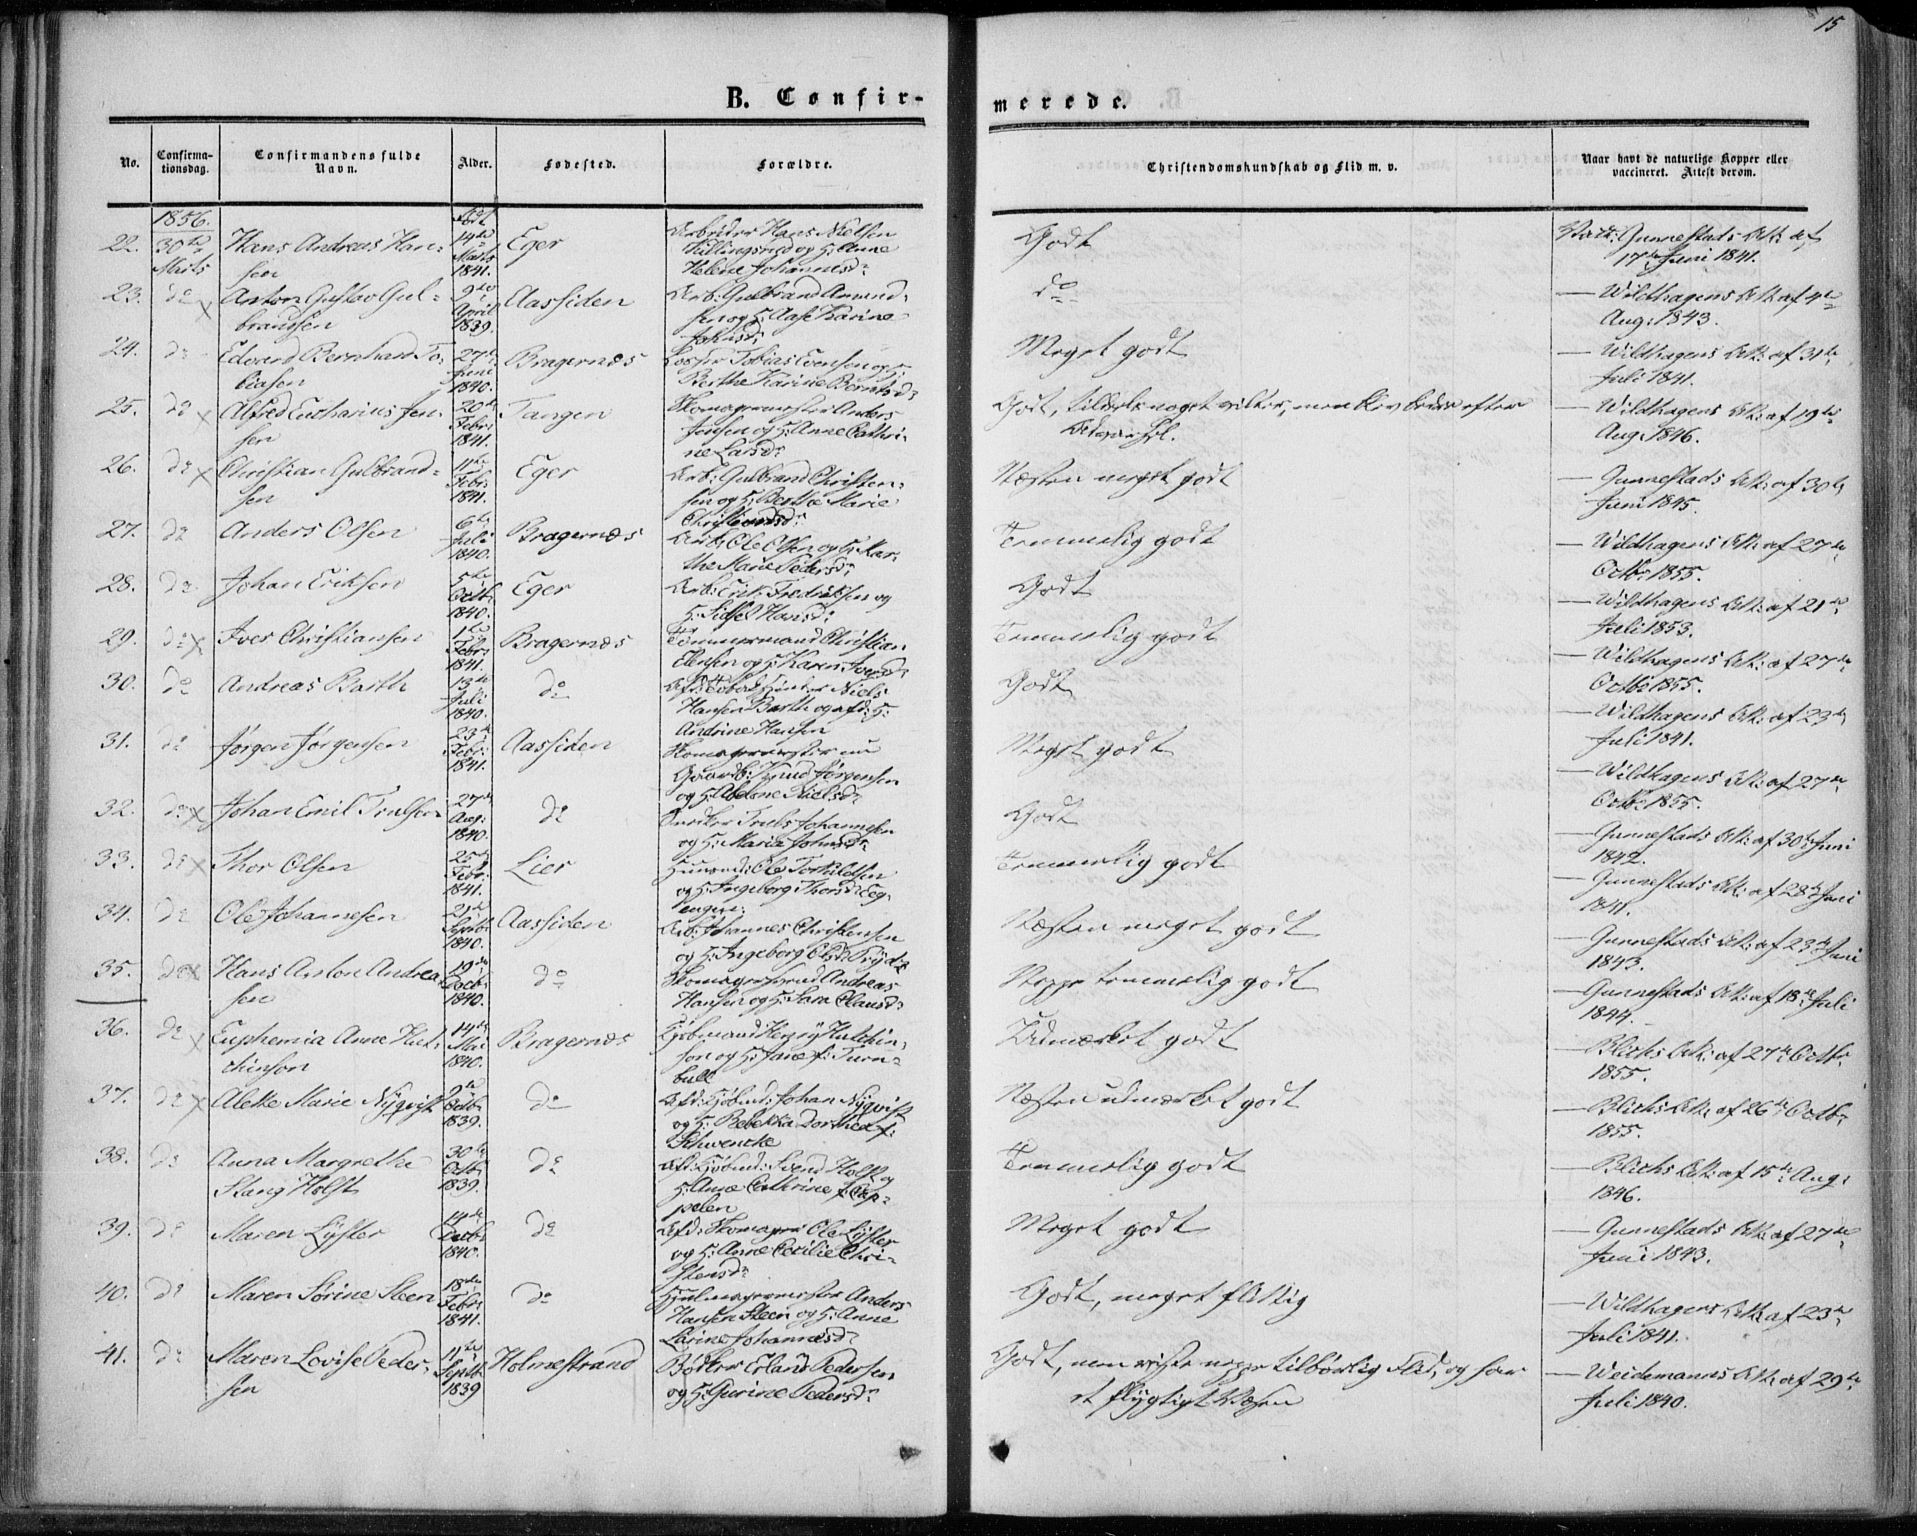 15
B. Confir-
merede.
No.
Confirma-
tionsdag.
Confirmandens fulde
Navn.
Alder.
Fødested.
Forældre.
Christendomskundskab og Flid m. v.
Naar havt de naturlige Kopper eller
vaccineret. Attest derom.
1856.
22. 30te Marts Hans Andreas Han-
sen
Født 14de Marts 1841.
Eger
Arbeider Hans Nielsen
og H: Anne
Helene Johannesd:
Godt
Vacc: Gunnestads Att: af
17de Juni 1841.
23. do x Anton Gustav Gul-
brandsen
9de April 1839.
Aassiden
Arb: Gulbrand Amund-
sen og H: Aase Karine
do
— Wildhagens Att: af 4de
Aug: 1843.
24. do Edvard Bernhard To-
biasen
27de Juni 1840.
Bragernæs
Tobias Evensen og H:
Berthe Karine Berntsd:
Meget godt
— Wildhagens Att: af 31te
Juli 1841.
25. do x Alfred Eucharius Jen-
sen
20de Febr: 1841.
Tangen
Skomagermester Anders
Jensen og H: Anne Cathri-
ne Larsd:
Godt, tildels noget men blev bedre efter
— Wildhagens Att: af 19de
Aug: 1846.
26. do x Christian Gulbrand-
sen
11te Febr: 1841.
Eger
Arb: Gulbrand Christen-
sen og H: Berthe Marie
Christiansd:
Næsten meget godt
— Gunnestads Att: af 30te
Juni 1845.
27. do Anders Olsen
6te Juli 1840.
Bragernæs
Arb: Ole Olsen og H: Mar-
the Marie Pedersd:
Temmelig godt
— Wildhagens Att: af 27de
Octbr: 1855.
28. do Johan Eriksen
5te Octb: 1840.
Eger
Arb: Erik Fredriksen og
H: Sidsel Hansd:
Godt
— Wildhagens Att: af 21de
Juli 1853.
29. do x Iver Christiansen
1te Febr: 1841.
Bragernæs
Tømmermand Christian
Ellensen og H: Karen Iversd:
Temmelig godt
— Wildhagens Att: af 27de
Octbr 1855.
30. do Andreas Barth
13de Juli 1840.
do
Niels
Hansen Barth og afd: H:
Andrine Hansen
Godt
— Wildhagens Att: af 23de
Juli 1841.
31. do Jørgen Jørgensen
23de Febr: 1841.
Aassiden
Skomagermester nu
Gaardb: Knud Jørgensen
og H: Abelone Nielsd:
Meget godt
— Wildhagens Att: af 27de
Octbr 1855.
32. do x Johan Emil Trulsen
27de Aug: 1840.
do
Snedker Truls Johannesen
og H: Maria Johnsd:
Godt
— Gunnestads Att: af 30te Juni
1842.
33. do x Thor Olsen
25de Febr: 1841.
Lier
Huusmd: Ole Torkildsen
og H: Ingeborg Thorsd: Eeg-
engen:
Temmelig godt
— Gunnestads Att: af 28de Juni
1841.
34. do Ole Johannesen
Septbr 1840.
Aassiden
Arb: Johannes Christensen
og H: Ingeborg Olsd:
Næsten meget godt
— Gunnestads Att: af 23de Juni
1843.
35. do x Hans Anton Andrea-
sen
19de Octb: 1840.
do
Skomagersvend Andreas
Hansen og H: Sara Clausd:
Neppe temmelig godt
— Gunnestads Att: af 18de Juli
1844.
36. do x Euphemia Anne Hut-
chinson
14de Mai 1840.
Bragernæs
Kjøbmand Henry Hutchin-
son og H: Jane f: Turn-
bull
Udmærket godt
— Blichs Att: af 27de Octbr
1855.
37. do x Alette Marie Nyqvist
9de Octb: 1839.
do
Afd: Kjøbmd: Johan Nyqvist
og H: Rebekka Dorthea f:
Schwencke
Næsten udmærket godt
— Blichs Att: af 26de Octb:
1855.
38. do Anna Margrethe
Stang Holst
30te Octb: 1839.
do
Afd: Kjøbmd: Svend Holst og
H: Anne Cathrine f: Cap-
pelen
Temmelig godt
— Blichs Att: af 15de Aug:
1846.
39. do Maren Lyster
14de 1840.
do
Afd: Skomager Ole Lyster
og H: Anne Cecilie Chri-
stensd:
Meget godt
— Gunnestads Att: af 27de
Juni 1843.
40. do Maren Sørine Steen
18de Febr: 1841.
do
Hjulmagermester Anders
Hansen Steen og H: Anne
Larine Johannesd:
Godt, meget flittig
— Wildhagens Att: af 23de
Juli 1841.
41. do Maren Lovise Peder-
sen
11te Septb: 1839
Holmestrand
Bødker Erland Pedersen
og H: Gurine Pedersd:
Godt, men viste neppe tilbørlig Flid, og har
et flygtigt Væsen
— Weidemanns Att: af 29de
Juli 1840.